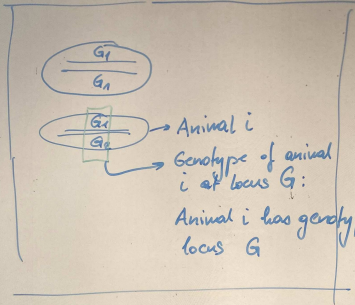 G1
G1
G1
G2
Animal i
Genotype of animal
i at locus G:
Animal i has genoty
locus G